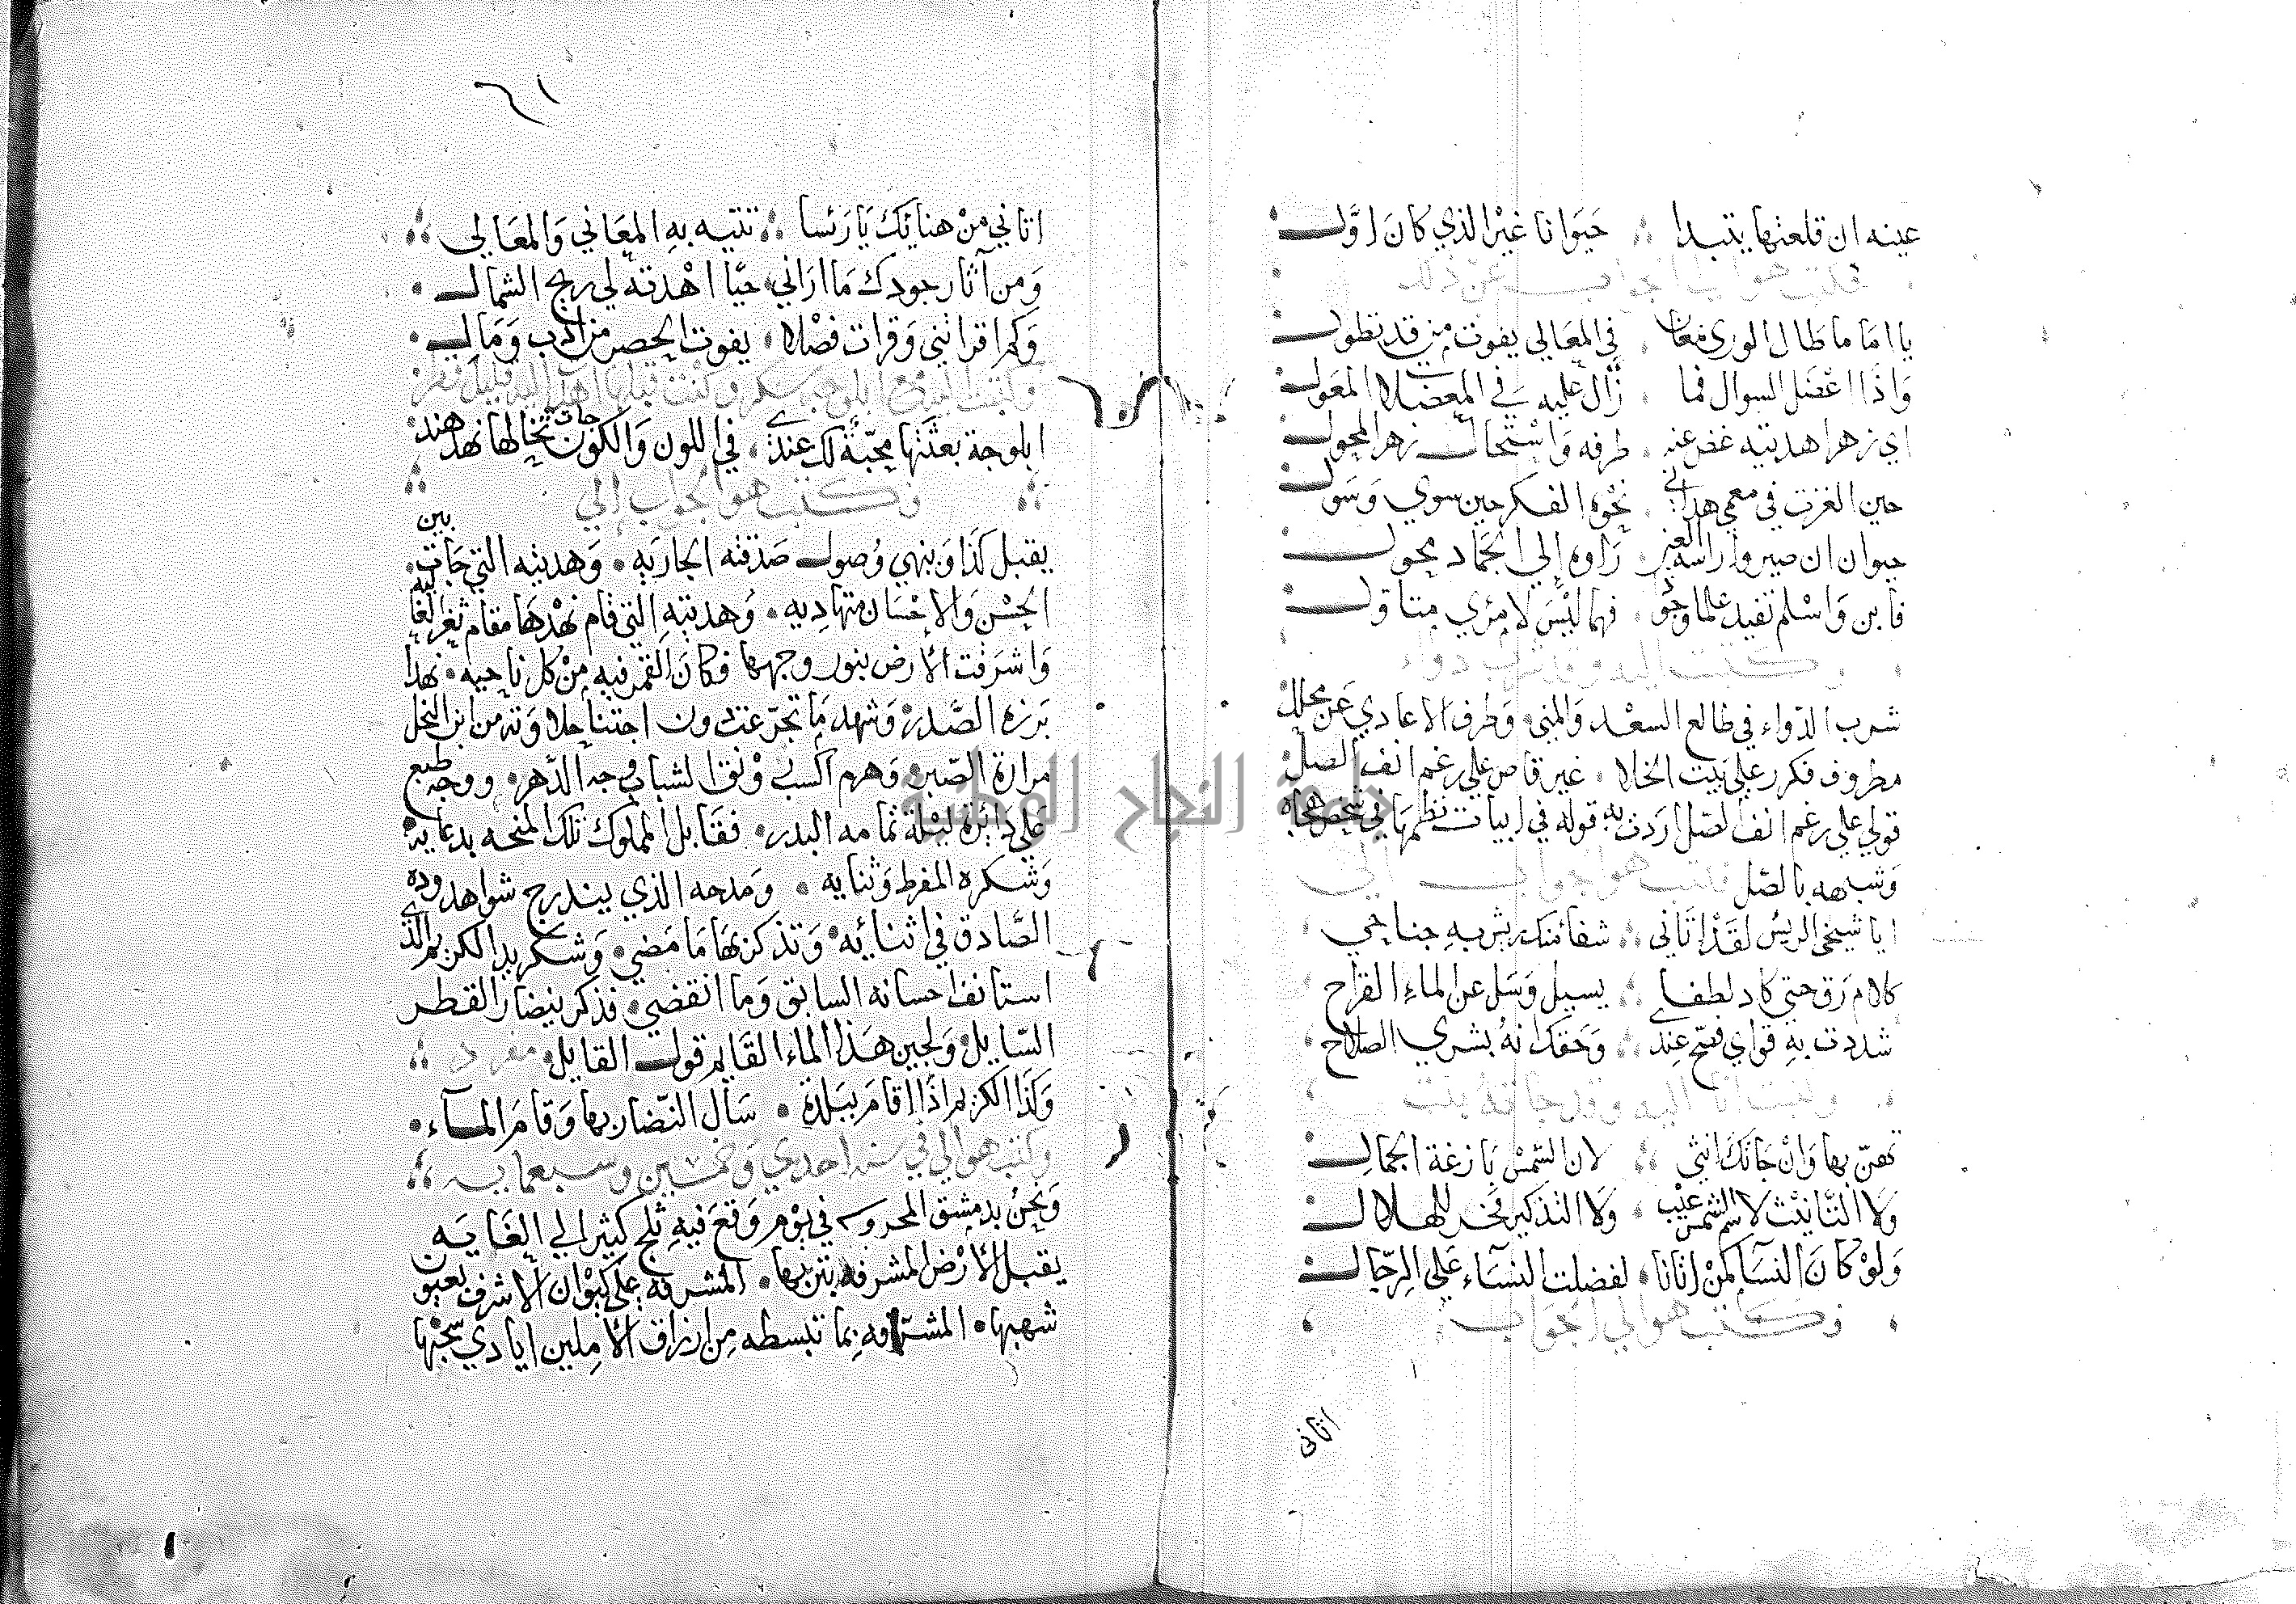 عينه ان قلعتها يتبدا ∴ حيوانا غير الذي كان اول
فكتب هو الي الجواب عن ذلك
يا اماما طال الوري بمعان في المعالي يفوت من قد تطول
واذا اعضل السوال فما زال عليه في المعضلات المعول
اي زهر اهديته غض عنه طرفه واستحال زهر المحول
حين الغزت في معمي هداني نحوه الفكر حين سوي وسول
حيوان ان صيروا راسه العين راوه الي الجماد محول
فابن واسلم تفيد علما وجودا فهما ليس لامرئ متاول
وكتبت اليه وقد شرب دواء
شرب الدواء في طالع السعد والمني وطرف الاعادي عن محلك
مطروف فكرر علي بيت الخلا غير قاص علي رغم انف الصل
قولي علي رغم انف الصل اردت به قوله في ابيات نظمها في شخص هجاه
وشبهه بالصل فكتب هو الجواب الي
ايا شيخي الريس لقد اتاني ∴ شفا منك ريش به جناحي
كلام رق حتي كاد لطفا ∴ يسيل وسل عن الماء القراح
شددت به قواي فصح عندي ∴ وحقك انه بشري الصلاح
وكتبت انا اليه وقد جاته بنت
تهن بها وان جاتك انثي ∴ لان الشمس بازغة الجمال
ولا التانيث لاسم الشمس عيب ولا التذكير فخر للهلال
ولو كان النسا كمن اتانا لفضلت النساء علي الرجال
وكتب هو الي الجواب
اتاني
٦١
اتاني من هنائك يا رئسا ∴ تتيه به المعاني والمعالي
ومن آثار جودك ما اراني حيا اهدته لي ريح الشمال
وكم اقراتني وقرات فضلا يفوت الحصر من ادب ومال
وكتبت اليه مع ابلوجة سكر وكنت قبلها اهديت اليه قليل قطر
ابلوجة بعثتها محبة لك عندي في اللون والكون جات تخالها نهد هند
وكتب هو الجواب الي
يقبل كذا وينهي وصول صدقته الجاريه وهديته التي جات بين
الحسن والاحسان متهاديه وهديته التي قام نهدها مقام ثغر الغانيه
واشرقت الارض بنور وجهها فكان القمر فيه من كل ناحيه نهدا
برزه الصدر وشهد ما تجرعت دون اجتنا حلاوته من ابر النحل
مرارة الصبر وهرم اكسب رونق الشباب وجه الدهر ووجه طبع
علي دائرة ليلة تمامه البدر فقابل المملوك تلك المنحه بدعايه
وشكره المفرط وثنايه ومدحه الذي يندرج شواهد وده
الصادق في اثنائه وتذكر بها ما مضي وشكر يد الكريم الذي
استانف احسانه السابق وما انقضي فذكر بنضار القطر
السايل ولجين هذا الماء القايم قول القايل مفرد
وكذا الكريم اذا اقام ببلدة سال النضار بها وقام الماء
وكتب هو الي في سنه احدي وخمسين وسبعمايه
ونحن بدمشق المحروسه في يوم وقع فيه ثلج كثير الي الغايه
يقبل الارض المشرفه بتربها المشرفه علي كيوان الاشرف بعيون
شهبها المشرفه بما تبسطه من ارزاق الاملين ايادي سحبها